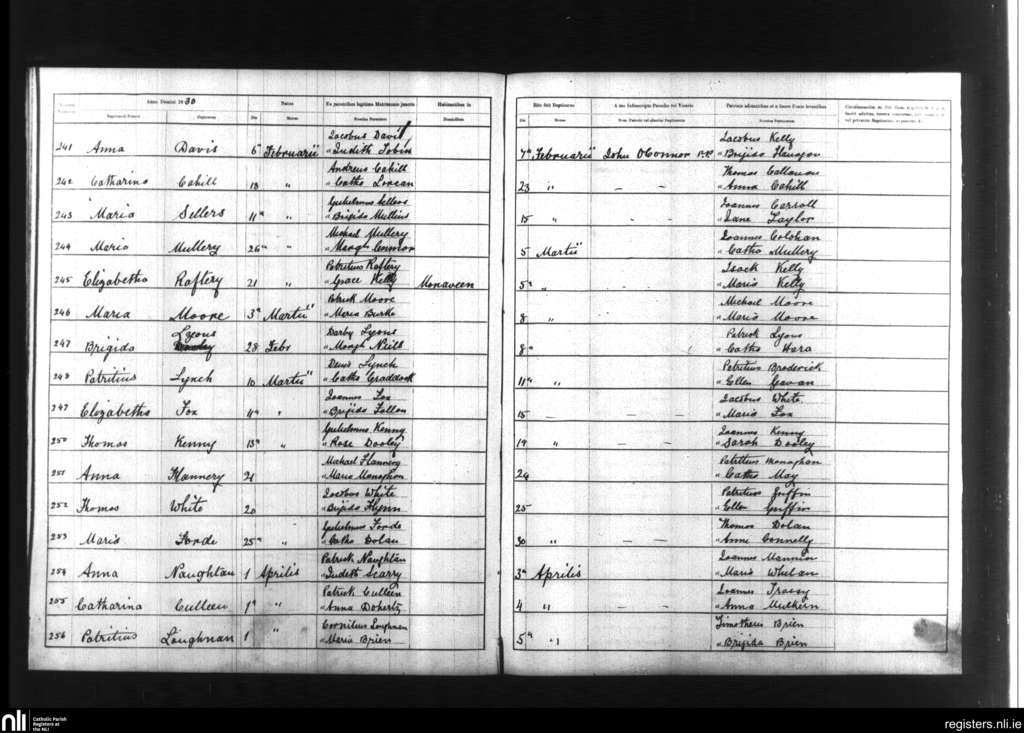 Anno Domini 1830
Natus
Ex parentibus legitimo Matrimonio junctis
Habitantibus in
Die
Mensis
Domicilium
241 Anna Davis 6a Februarii Jacobus Davis
" Judith Tobin
242 Catharina Cahill 18 " Andreas Cahill
" Catha Lorcan
243 Maria Sellers 11a " Gulielmus Sellers
" Brigida Mullins
244 Maria Mullery 26a " Michael Mullery
" Margt Connor
245 Elizabetha Raftery 21 " Patritius Raftery
" Grace Kelly Monaveen
246 Maria Moore 3a Martii Patrick Moore
" Maria Burke
247 Brigida Lyons 28 Febr Darby Lyons
" Margh Neill
248 Patritius Lynch 10 Martii Denis Lynch
" Catha Craddock
249 Elizabetha Fox 11a " Joannes Fox
" Brigida Fallon
250 Thomas Kenny 13a " Gulielmus Kenny
" Rose Dooley
251 Anna Flannery 21 Michael Flannery
" Maria Monaghan
252 Thomas White 20 Jacobus White
" Brigida Flynn
253 Maria Forde 25a " Gulielmus Forde
" Catha Dolan
254 Anna Naughtan 1 Aprilis Patrick Naughtan
" Judith Scarry
255 Catharina Culleen 1a " Patrick Culleen
" Anna Doherty
256 Patritius Loughnan 1 " Cornilius Loughnan
" Maria Brien
Rite fuit Baptizatus
A me Infrascripto Parocho vel Vicario
Die
Mensis
7a Februarii John OConnor P.P. Jacobus Kelly
" Brigida
23 " – – Thomas Callanan
" Anna Cahill
15 " – – Joannes Carroll
" Jane Taylor
5 Martii Joannes Colohan
" Catha Mullery
5a " Isack Kelly
" Maria Kelly
8 " Michael Moore
" Maria Moore
8a Patrick Lyons
" Catha Hara
11a " Patritius Broderick
" Ellen Gavan
15 – – – Jacobus White
" Maria Fox
14 " – – Joannes Kenny
" Sarah Dooley
24 Patritius Monaghan
" Catha May
25 Patritius Griffin
" Ellen Griffin
30 " – – Thomas Dolan
" Anne Connelly
3a Aprilis Joannes Mannion
" Maria Whelan
4 " – – Joannes Tracy
" Anna Mulkern
5a " Timotheus Brien
" Brigida Brien
nli
Catholic Parish
Registers at
the NLI
registers.nli.ie